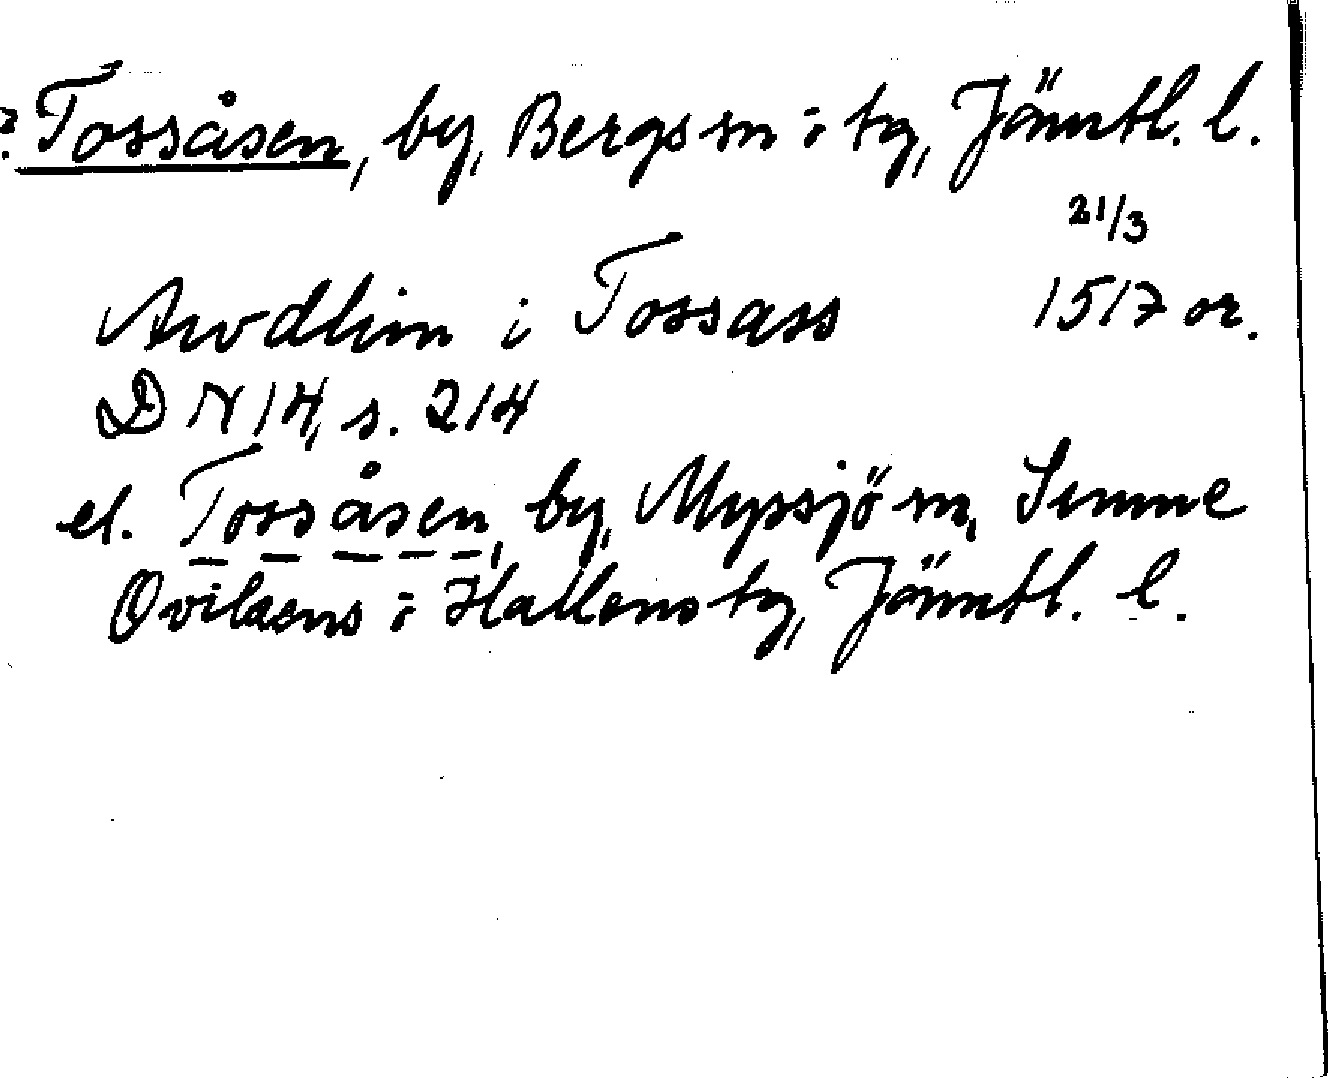 ? Tossåsen, by, Bergs sn o tg, Jämtl. l.
21/3
Awdhn i Tossass 1517 or.
DN 14, s. 214
el. Tossåsen, by, Myssjö sn, Sunne
Ovikens o Hallens tg, Jämtl. l.